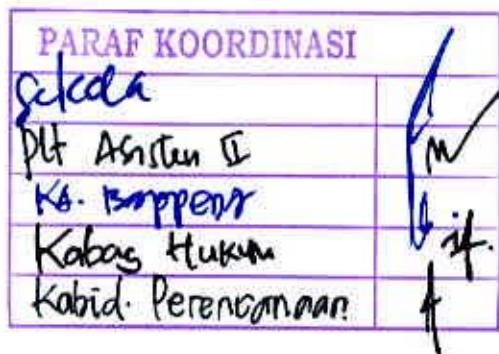 PARAF KOORDINASI
Sekda
Plt Asisten II
Ka. Bappeda
Kabag Hukum
Kabid. Perencanaan